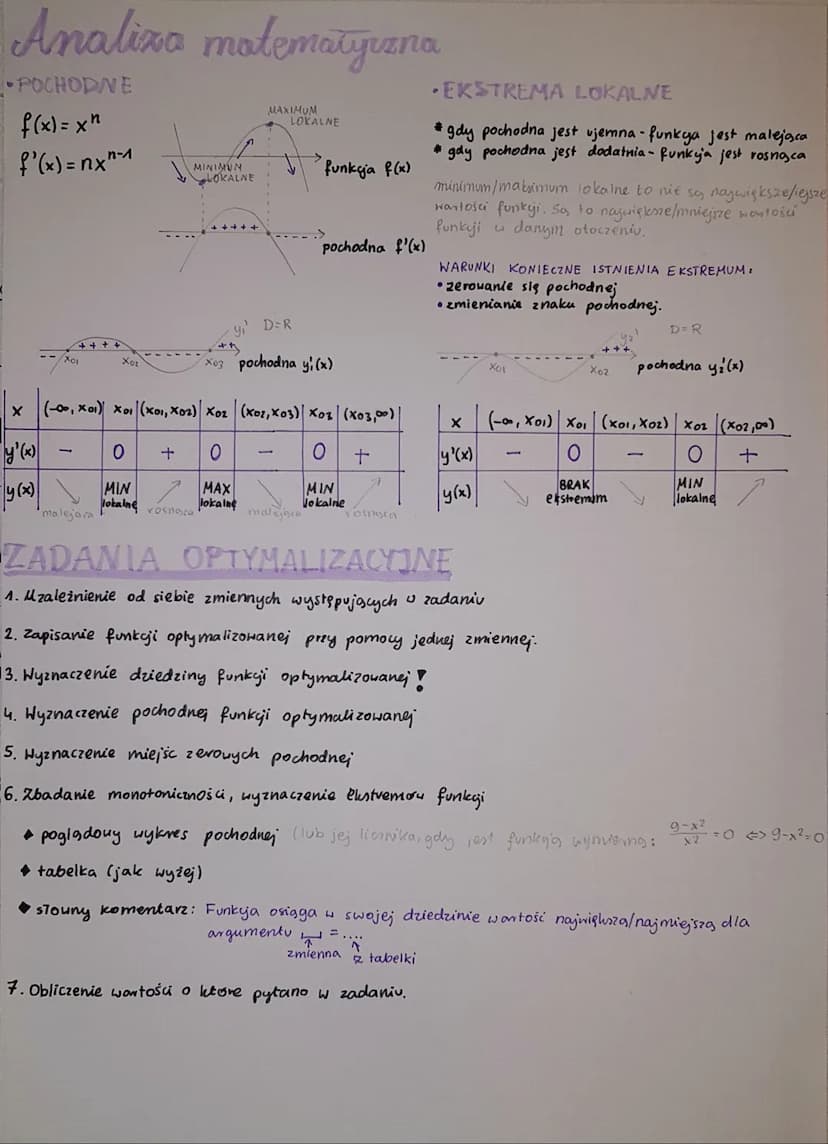 Analiza matematyczna
• POCHODNE
f(x) = xⁿ
f'(x) = nxⁿ⁻¹
MAXIMUM
LOKALNE
MINIMUM
LOKALNE
funkcja f(x)
+++++
pochodna f'(x)
• EKSTREMA LOKALNE
* gdy pochodna jest ujemna - funkcja jest malejąca
* gdy pochodna jest dodatnia - funkcja jest rosnąca
minimum/maksimum lokalne to nie są największe/
wartości funkcji. Są to największe/mniejsze wartości
funkcji w danym otoczeniu.
WARUNKI KONIECZNE ISTNIENIA EKSTREMUM:
• zerowanie się pochodnej
• zmienianie znaku pochodnej.
y₁' D=R
++++ ++
x₀₁ x₀₂ x₀₃ pochodna y₁'(x)
x (-∞, x₀₁) x₀₁ (x₀₁, x₀₂) x₀₂ (x₀₂, x₀₃) x₀₂ (x₀₃, ∞)
y'(x) - 0 + 0 - 0 +
y(x) ↘ MIN lokalne ↗ MAX lokalne ↘ MIN lokalne ↗
malejąca rosnąca malejąca rosnąca
y₂' D=R
+++
x₀₁ x₀₂ pochodna y₂'(x)
x (-∞, x₀₁) x₀₁ (x₀₁, x₀₂) x₀₂ (x₀₂, ∞)
y'(x) - 0 - 0 +
y(x) ↘ BRAK ekstremum ↘ MIN lokalne ↗
ZADANIA OPTYMALIZACYJNE
1. Uzależnienie od siebie zmiennych występujących w zadaniu
2. Zapisanie funkcji optymalizowanej przy pomocy jednej zmiennej.
3. Wyznaczenie dziedziny funkcji optymalizowanej!
4. Wyznaczenie pochodnej funkcji optymalizowanej
5. Wyznaczenie miejsc zerowych pochodnej
6. Zbadanie monotoniczności, wyznaczenie ekstremów funkcji
♦ poglądowy wykres pochodnej (lub jej licznika, gdy jest funkcją wymierną: (9-x²)/x² = 0 <=> 9-x²=0
♦ tabelka (jak wyżej)
♦ słowny komentarz: Funkcja osiąga w swojej dziedzinie wartość największą/najmniejszą dla
argumentu ⎵ = ....
zmienna z tabelki
7. Obliczenie wartości o które pytano w zadaniu.